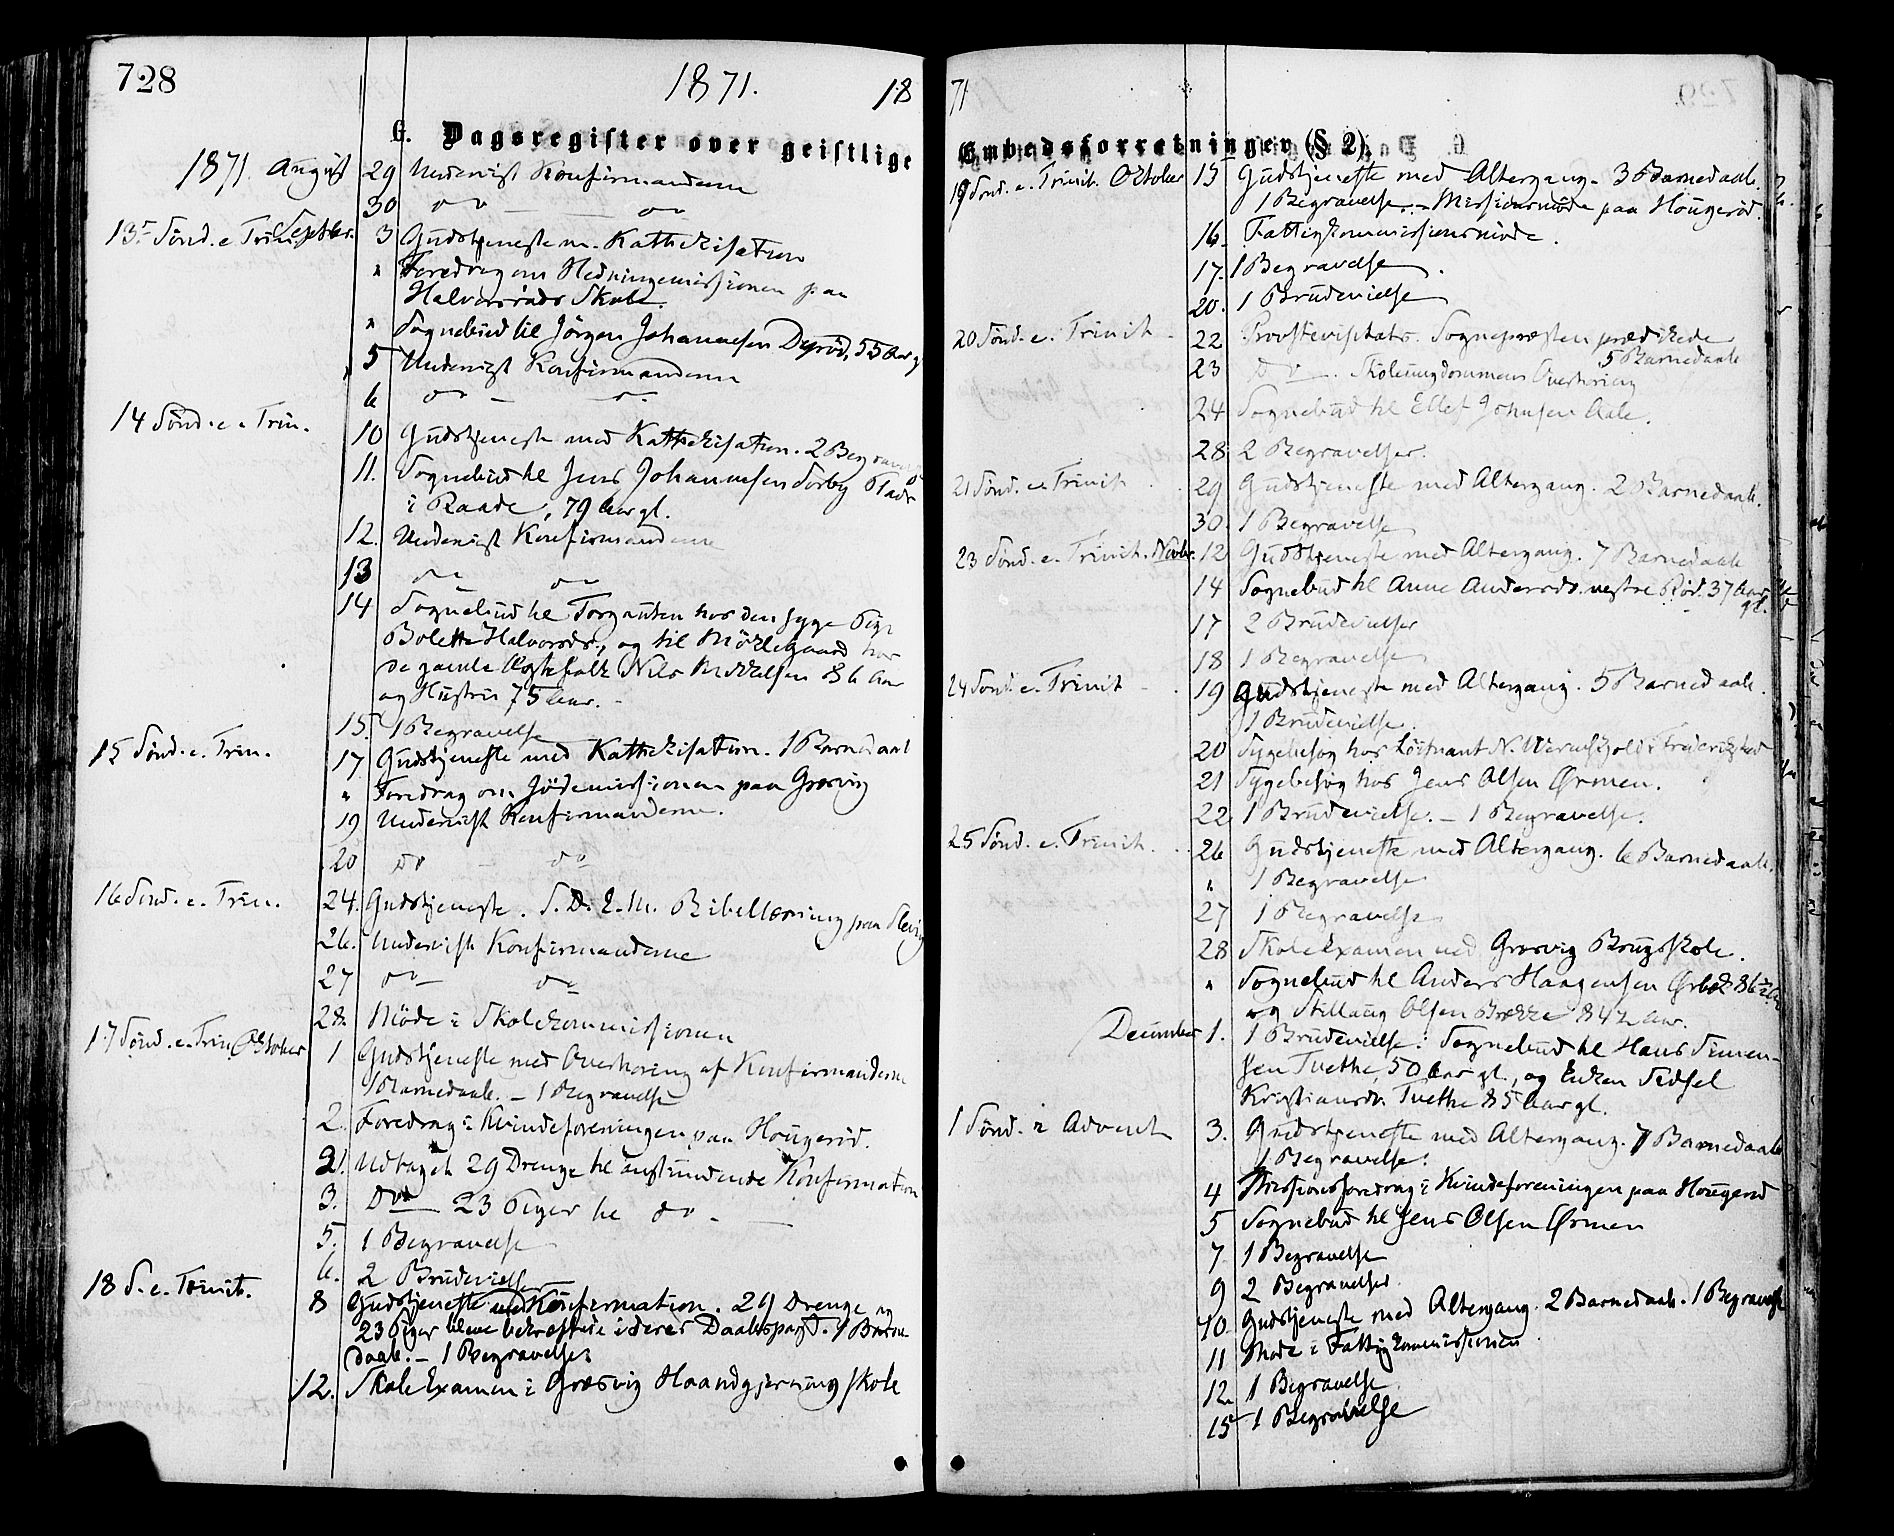 728
1871.
18
G. Dagsregister over geistlige
1871. August 29 Underviist Konfirmanderne
30 do — do
13de Sönd. e Trin. Septbr. 3 Gudstjeneste m. Kathekisation
" Foredrag om Hedningemissionen paa
Halvorsröds Skole.
" Sognebud til Jörgen Johannesen Dyröd, 55 Aar g
5 Underviist Konfirmanderne
6 do — do
14 Sönd. e. Trin.
10 Gudstjeneste med Kathekisation. 2 Begravelser
11. Sognebud til Jens Johannesen Sorby
i Raade, 79 Aar gl.
12. Underviist Konfirmanderne
13 do do
14 Sognebud til Torgauten hos den syge Pige
Bolette Halvorsdr., og til Mörkegaard hos
de gamle Ægtefolk Nils Mikkelsen 86 Aar
og Hustru 75 Aar.
15. 1 Begravelse
15 Sönd. e. Trin.
17 Gudstjeneste med Kathekisation. 1 Barnedaab
" Foredrag om Jödemissionen paa Græsvig
19 Underviist Konfirmanderne.
20 do — do
16 Sönd. e. Trin.
24. Gudstjeneste. S. D. E. M. Bibellæsning paa Slevig
26. Underviist Konfirmanderne
27 do — do
28. Möde i Skolekommissionen
17 Sönd. e. Trin. Oktober 1 Gudstjeneste med Overhöring af Konfirmanderne
1 Barnedaab. — 1 Begravelse
2. Foredrag i Kvindeforeningen paa Hougeröd.
2. Udtaget 29 Drenge til anstundende Konfirmation
3. Do 23 Piger til do —
5. 1 Begravelse
6. 2 Brudevielser
18 S. e. Trinit.
8 Gudstjeneste med Konfirmation. 29 Drenge og
23 Piger bleve bekræftede i deres Daabspagt. 1 Barne
daab. — 1 Begravelse
12. Skole Examen i Græsvig Haandgjerningsskole
71
Embedsforretninger (§ 2)
19 Sönd. e. Trinit. Oktober 15 Gudstjeneste med Altergang. 3 Barnedaab.
1 Begravelse. — Missionsmöde paa Hougeröd.
16. Fattigkommissionsmöde.
17. 1 Begravelse.
20. 1 Brudevielse
20 Sönd. e. Trinit.
22 Provstevisitats. Sognepræsten prædikede
5 Barnedaab
23 Do — . Skoleungdommens Overhöring
24 Sognebud til Ellef Johnsen Aale.
28. 2 Begravelser.
21 Sönd. e. Trinit.
29 Gudstjeneste med Altergang. 2 Barnedaab.
30. 1 Begravelse
23 Sönd. e. Trinit. Novbr. 12 Gudstjeneste med Altergang. 7 Barnedaab
14 Sognebud til Anne Andersdr. vestre Röd. 37 Aar
gl.
17 2 Brudevielser
18 1 Begravelse
24 Sönd. e. Trinit
19 Gudstjeneste med Altergang. 5 Barnedaab.
1 Brudevielse.
20 Sygebesög hos Löitnant N. Werenskjold i Frederikstad
21 Sygebesög hos Jens Olsen Ørmen.
22 1 Brudevielse. — 1 Begravelse.
25 Sönd. e. Trinit.
26 Gudstjeneste med Altergang. 6 Barnedaab.
" 1 Begravelse
27 1 Begravelse
28 Skole Examen ved Græsvig Brugsskole.
" Sognebud til Anders Haagensen 86½ Aar
og Stillaug Olsen Brekke 84½ Aar.
December 1. 1 Brudevielse. Sognebud til Hans Simen-
sen Tvethe, 50 Aar gl., og Enken Sidsel
Kristiansdr. Tvethe 85 Aar gl.
1 Sönd. i Advent
3. Gudstjeneste med Altergang. 7 Barnedaab
1 Begravelse.
4 Missionsforedrag i Kvindeforeningen paa Hougeröd
5 Sognebud til Jens Olsen Ørmen
7. 1 Begravelse
9 2 Begravelser
10. Gudstjeneste med Altergang. 2 Barnedaab. 1 Begravelse
11 Möde i Fattigkommissionen
12. 1 Begravelse
15 1 Begravelse